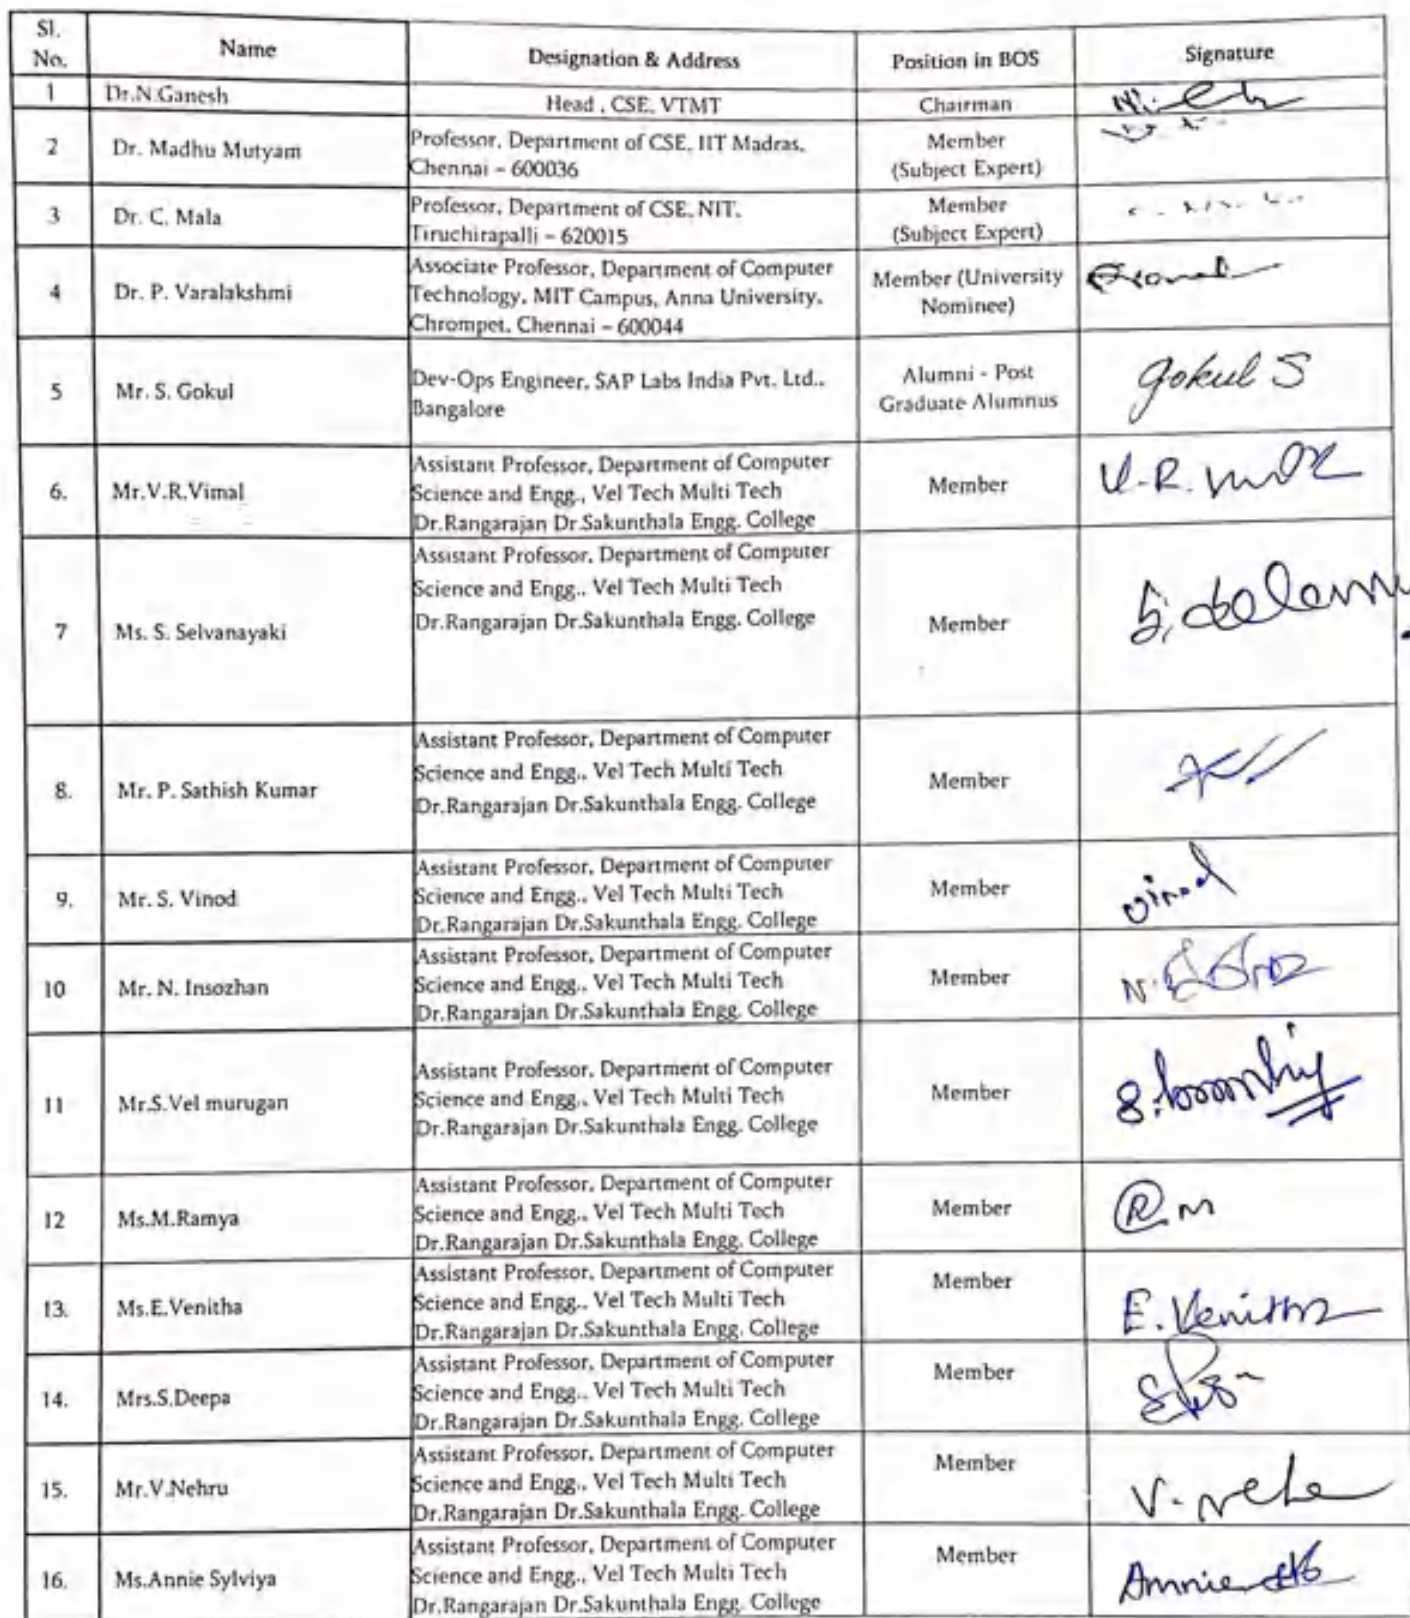 Sl.
No.
Name
Designation & Address
Position in BOS
Signature
1
Dr.N.Ganesh
Head , CSE, VTMT
Chairman
2
Dr. Madhu Mutyam
Professor, Department of CSE, IIT Madras,
Chennai – 600036
Member
(Subject Expert)
3
Dr. C. Mala
Professor, Department of CSE, NIT,
Tiruchirapalli – 620015
Member
(Subject Expert)
4
Dr. P. Varalakshmi
Associate Professor, Department of Computer
Technology, MIT Campus, Anna University,
Chrompet, Chennai – 600044
Member (University
Nominee)
5
Mr. S. Gokul
Dev-Ops Engineer, SAP Labs India Pvt. Ltd.,
Bangalore
Alumni - Post
Graduate Alumnus
Gokul S
6.
Mr.V.R.Vimal
Assistant Professor, Department of Computer
Science and Engg., Vel Tech Multi Tech
Dr.Rangarajan Dr.Sakunthala Engg. College
Member
7
Ms. S. Selvanayaki
Assistant Professor, Department of Computer
Science and Engg., Vel Tech Multi Tech
Dr.Rangarajan Dr.Sakunthala Engg. College
Member
8.
Mr. P. Sathish Kumar
Assistant Professor, Department of Computer
Science and Engg., Vel Tech Multi Tech
Dr.Rangarajan Dr.Sakunthala Engg. College
Member
9.
Mr. S. Vinod
Assistant Professor, Department of Computer
Science and Engg., Vel Tech Multi Tech
Dr.Rangarajan Dr.Sakunthala Engg. College
Member
Vinod
10
Mr. N. Insozhan
Assistant Professor, Department of Computer
Science and Engg., Vel Tech Multi Tech
Dr.Rangarajan Dr.Sakunthala Engg. College
Member
11
Mr.S.Vel murugan
Assistant Professor, Department of Computer
Science and Engg., Vel Tech Multi Tech
Dr.Rangarajan Dr.Sakunthala Engg. College
Member
12
Ms.M.Ramya
Assistant Professor, Department of Computer
Science and Engg., Vel Tech Multi Tech
Dr.Rangarajan Dr.Sakunthala Engg. College
Member
13.
Ms.E.Venitha
Assistant Professor, Department of Computer
Science and Engg., Vel Tech Multi Tech
Dr.Rangarajan Dr.Sakunthala Engg. College
Member
E. Venitha
14.
Mrs.S.Deepa
Assistant Professor, Department of Computer
Science and Engg., Vel Tech Multi Tech
Dr.Rangarajan Dr.Sakunthala Engg. College
Member
15.
Mr.V.Nehru
Assistant Professor, Department of Computer
Science and Engg., Vel Tech Multi Tech
Dr.Rangarajan Dr.Sakunthala Engg. College
Member
16.
Ms.Annie Sylviya
Assistant Professor, Department of Computer
Science and Engg., Vel Tech Multi Tech
Dr.Rangarajan Dr.Sakunthala Engg. College
Member
Annie